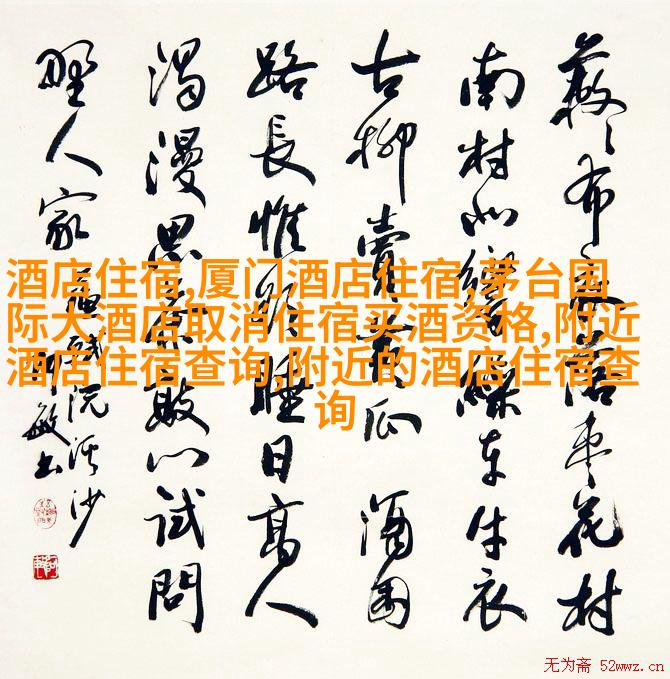 酒店住宿,厦门酒店住宿,茅台国
际大酒店取消住宿买酒资格,附近
酒店住宿查询,附近的酒店住宿查
询
蔌〻落枣花村
南村北響繰车牛衣
古柳賣黃瓜 酒困
路長惟欲睡日高人
渴漫思茶敲门試問
野人家 蘇軾浣溪沙
敏书
无为斋 52wwz.cn